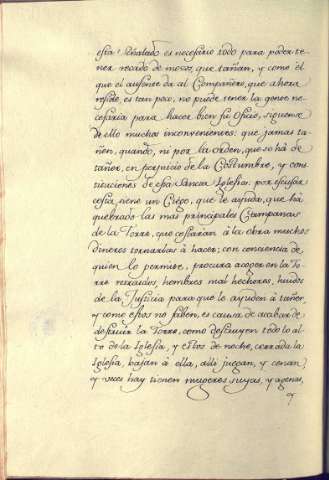 essa? Salariado es necesario todo para poder te-
ner recado de mosos, que tañan, y como el
que el ausente da al Compañero, que ahora
reside, es tan poco, no puede tener la gente ne-
cesaria para hacer bien su Oficio, siguense
de ello muchos inconvenientes: que jamas ta-
ñen, quando, ni por la orden, que se há de
tañer, en perjuicio de la Costumbre, y cons-
tituciones de esta Sancta Iglesia. por escusar
costa, tiene un Ciego, que le ayuda, que há
quebrado las más principales Campanas
de la Torre, que costarian á la obra muchos
dineros tornarlas á hacer; con conciencia de
quien lo permite, procura acoger en la To-
rre retraídos, hombres mal hechores, huidos
de la Justicia para que le ayuden á tañer,
y como estos no saben, es causa de acabar de
destruir la Torre, como destruyen todo lo al-
to de la Iglesia, y estos de noche, cerrada la
Iglesia, bajan á ella, alli juegan, y cenan?
y veces hay tienen mugeres suyas, y agenas,